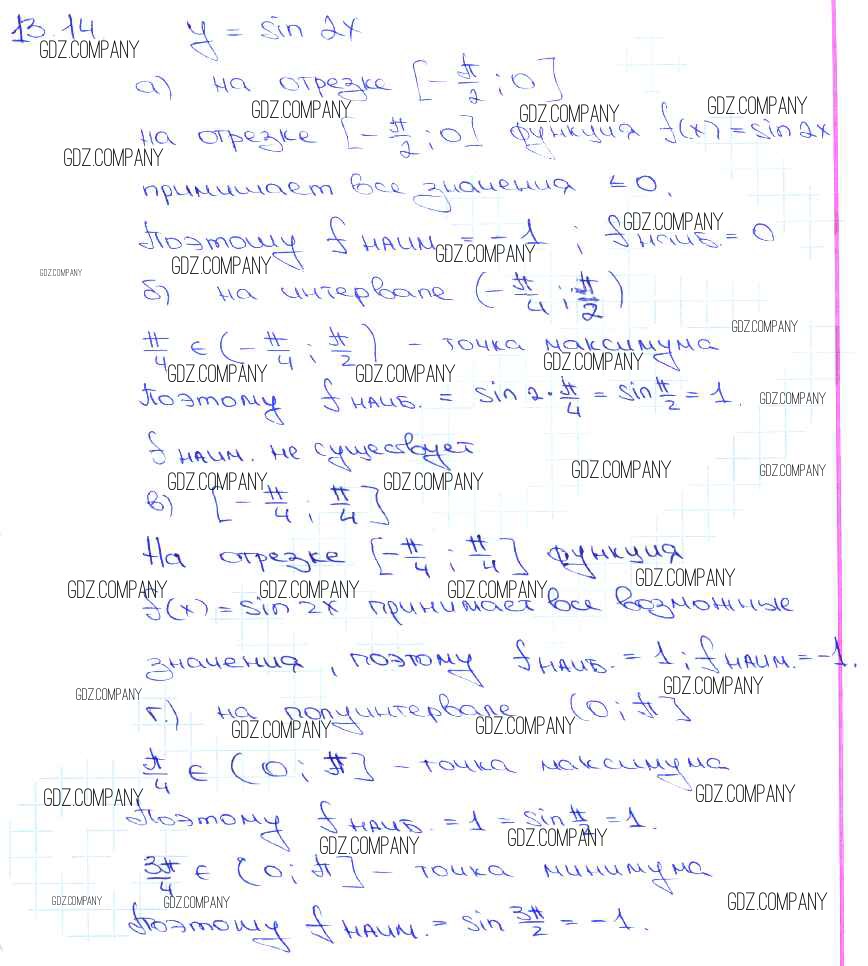 13.14. y = sin 2x
GDZ.COMPANY
а) на отрезке [-π/2 ; 0]
GDZ.COMPANY GDZ.COMPANY GDZ.COMPANY
на отрезке [-π/2 ; 0] функция f(x) = sin 2x
GDZ.COMPANY
принимает все значения ≤ 0.
Поэтому f наим. = -1 ; f наиб. = 0
GDZ.COMPANY GDZ.COMPANY GDZ.COMPANY
GDZ.COMPANY
б) на интервале (-π/4 ; π/2)
π/4 ∈ (-π/4 ; π/2) - точка максимума
GDZ.COMPANY
GDZ.COMPANY GDZ.COMPANY GDZ.COMPANY
Поэтому f наиб. = sin 2·π/4 = sin π/2 = 1.
GDZ.COMPANY
f наим. не существует
GDZ.COMPANY GDZ.COMPANY GDZ.COMPANY GDZ.COMPANY
в) [-π/4 ; π/4]
На отрезке [-π/4 ; π/4] функция
GDZ.COMPANY GDZ.COMPANY GDZ.COMPANY GDZ.COMPANY
f(x) = sin 2x принимает все возможные
значения, поэтому f наиб. = 1 ; f наим. = -1.
GDZ.COMPANY GDZ.COMPANY
г.) на полуинтервале (0 ; π]
GDZ.COMPANY GDZ.COMPANY
π/4 ∈ (0 ; π] - точка максимума
GDZ.COMPANY GDZ.COMPANY
Поэтому f наиб. = 1 = sin π/2 = 1.
GDZ.COMPANY GDZ.COMPANY
3π/4 ∈ (0 ; π] - точка минимума
GDZ.COMPANY GDZ.COMPANY GDZ.COMPANY
Поэтому f наим. = sin 3π/2 = -1.